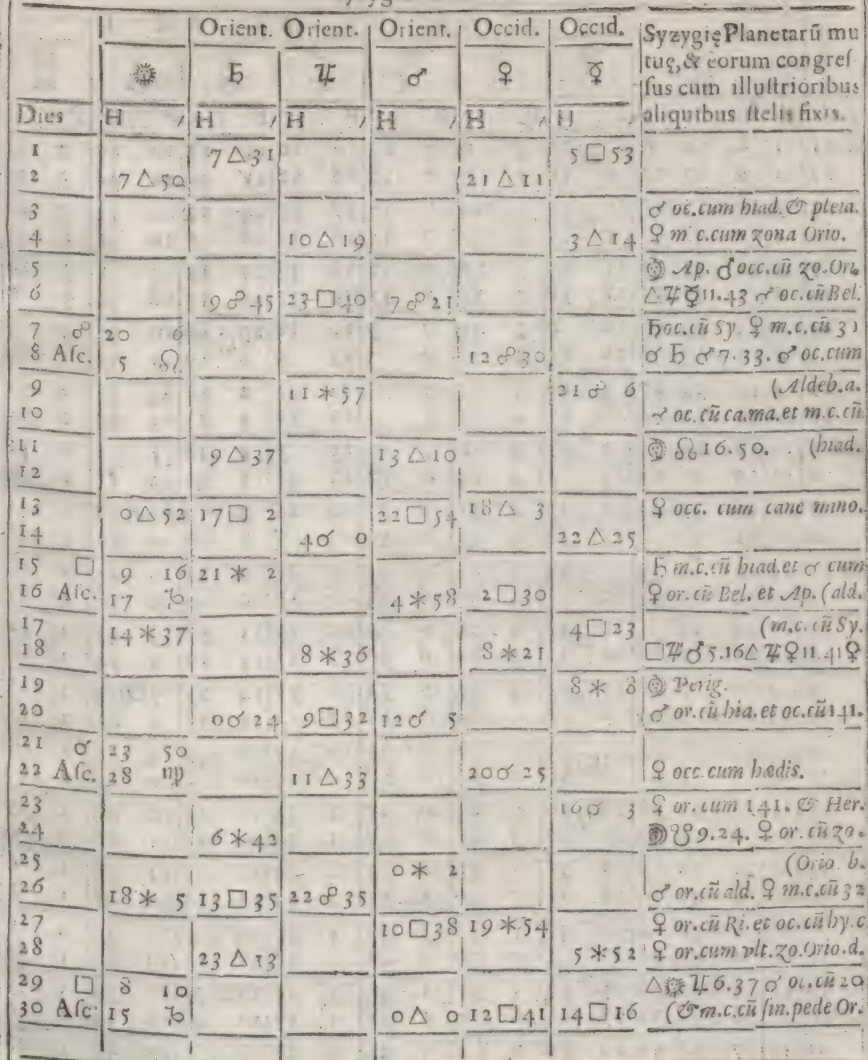 Orient. Orient. Orient. Occid. Occid. Syzygię Planetarũ mu
tuę, & eorum congreſ
☉ ♄ ♃ ♂ ♀ ☿ ſus cum illuſtrioribus
Dies H ′ H ′ H ′ H ′ H ′ H ′ aliquibus ſtelis fixis.
1 7 △ 31 5 □ 53
2 7 △ 50 21 △ 11
3 ♂ oc.cum hiad. & pleia.
4 10 △ 19 3 △ 14 ♀ m c.cum zona Orio.
5 Ap. ♂ occ.cũ zo.Ori.
6 9 ☍ 45 23 □ 40 7 ☍ 21 △ ♃ ☿ 11.43 ♂ oc.cũ Bel.
7 ☍ 20 6 ♄ oc.cũ Sy. ♀ m.c.cũ 31
8 Aſc. 5 ♌ 12 ☍ 30 ☌ ♄ ♂ 7.33. ♂ oc.cum
9 11 ✶ 57 21 ☍ 6 (Aldeb.a.
10 ♂ oc.cũ ca.ma.et m.c.cũ
11 9 △ 37 13 △ 10 ☊ 16.50. (hiad.
12
13 0 △ 52 17 □ 2 22 □ 54 18 △ 3 ♀ occ. cum cane mino.
14 4 ☌ 0 22 △ 25
15 □ 9 16 21 ✶ 2 ♄ m.c.cũ hiad.et ♂ cum
16 Aſc. 17 ♑ 4 ✶ 58 2 □ 30 ♀ or.cũ Bel. et Ap. (ald.
17 14 ✶ 37 4 □ 23 (m.c.cũ Sy.
18 8 ✶ 36 8 ✶ 21 □ ♃ ♂ 5.16 △ ♃ ♀ 11.41 ♀
19 8 ✶ 8 Perig.
20 0 ☌ 24 9 □ 32 12 ☌ 5 ♂ or.cũ hia.et oc.cũ 141.
21 ☌ 23 50
22 Aſc. 28 ♍ 11 △ 33 20 ☌ 25 ♀ occ.cum hædis.
23 16 ☌ 3 ♀ or.cum 141. & Her.
24 6 ✶ 42 ☋ 9.24. ♀ or.cũ zo.
25 0 ✶ 2 (Orio b.
26 18 ✶ 5 13 □ 35 22 ☍ 35 ♂ or.cũ ald. ♀ m.c.cũ 32
27 10 □ 38 19 ✶ 54 ♀ or.cũ Ri.et oc.cũ hy.c
28 23 △ 13 5 ✶ 52 ♀ or.cum vlt.zo.Orio.d.
29 □ 8 10 △ ☉ ♃ 6.37 ♂ oc.cũ 20
30 Aſc 15 ♑ 0 △ 0 12 □ 41 14 □ 16 (& m.c.cũ ſin.pede Or.